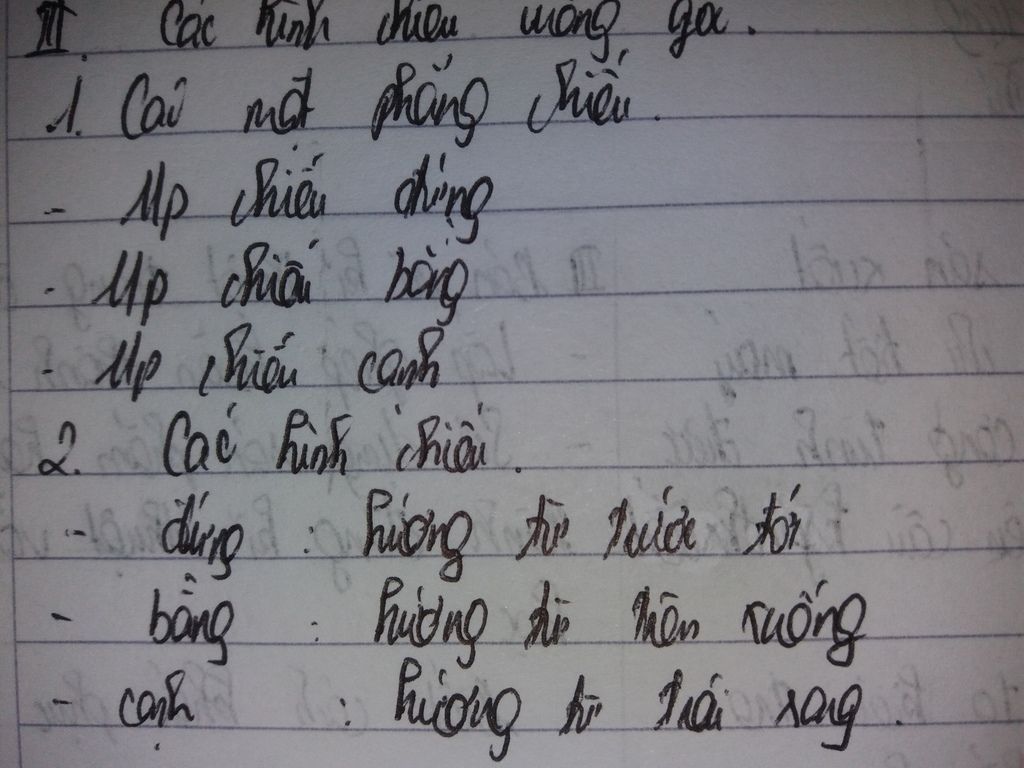 III. Các hình chiếu vuông góc.
1. Các mặt phẳng chiếu.
- Mp chiếu đứng
- Mp chiếu bằng
- Mp chiếu cạnh
2. Các hình chiếu.
- đứng : hướng từ trước tới
- bằng : hướng từ trên xuống
- cạnh : hướng từ trái sang.